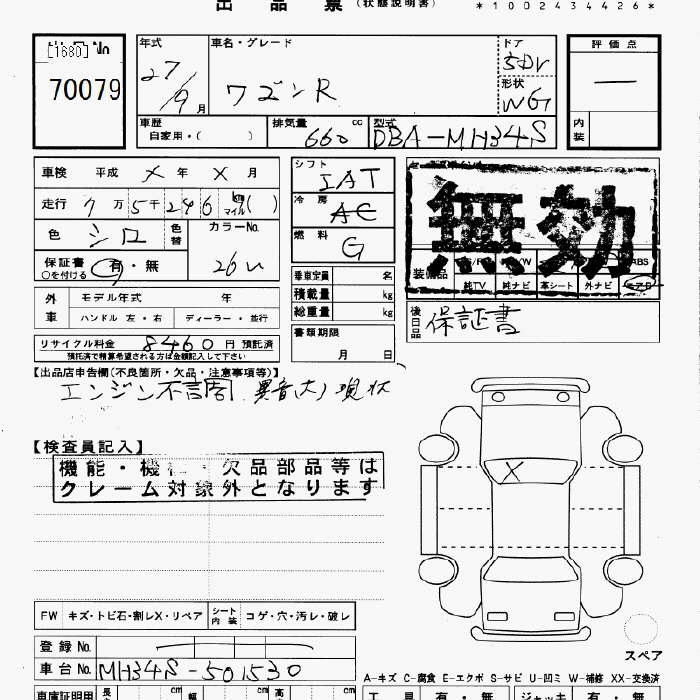 出 品 票 (状態説明書) *1002434426*
[1680] No
70079
年式
27/9 月
車名・グレード
ワゴンR
ドア
5Dr
形状
WG
評価点
—
内装
車歴
自家用・( )
排気量 cc
660
型式
DBA-MH34S
車検 平成 メ 年 メ 月
走行 7 万 5 千 246 km マイル ( )
色 シロ 色替
カラーNo.
26U
保証書 有・無
○を付ける
シフト
IAT
冷房
AC
燃料
G
無効
装備品
ABS
純TV 純ナビ 革シート 外ナビ エアB
乗車定員 名
積載量 kg
総重量 kg
書類期限
月 日
後日品 保証書
外車 モデル年式 年
ハンドル 左・右 ディーラー・並行
リサイクル料金 8460 円 預託済
預託済で精算希望される方は金額記入して下さい
【出品店申告欄(不良箇所・欠品・注意事項等)】
エンジン不調 異音(大) 現状
【検査員記入】
機能・機 欠品部品等は
クレーム対象外となります
FW キズ・トビ石・割レX・リペア シート内装 コゲ・穴・汚レ・破レ
登録No.
車台No. MH34S-501530
スペア
A-キズ C-腐食 E-エクボ S-サビ U-凹ミ W-補修 XX-交換済
車庫証明用 長 cm 幅 cm 高 cm
工具 有・無 ジャッキ 有・無